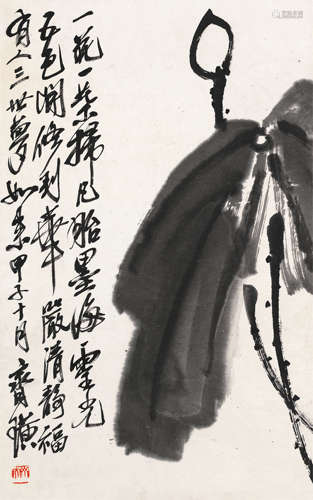 一花一葉掃凡胎墨海靈光
五色開修到華嚴清靜福
有人三世夢如來甲子十月齊璜